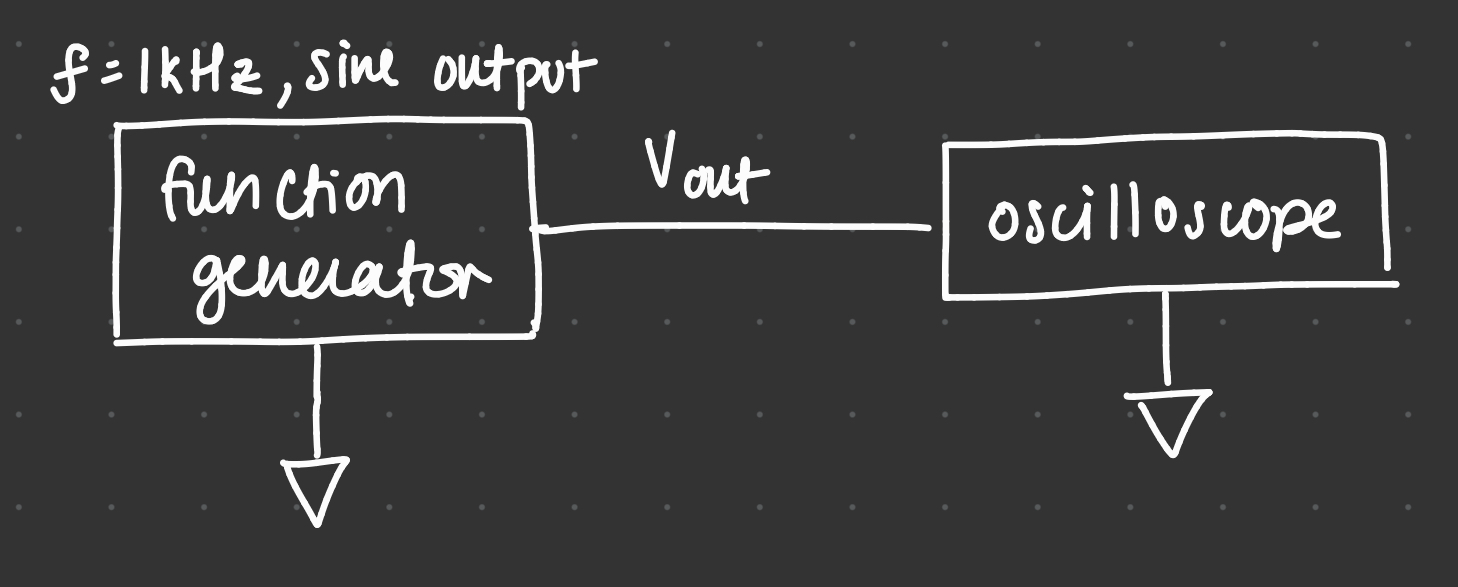 f = 1kHz, sine output
function
generator
Vout
oscilloscope